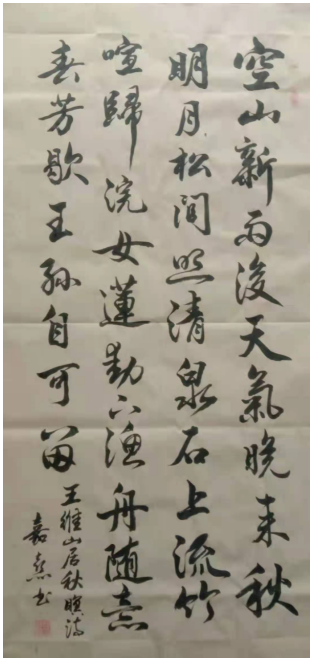 空山新雨後天氣晚来秋
明月松间照清泉石上流竹
喧歸浣女蓮動下漁舟随意
春芳歇王孫自可留
王維山居秋暝詩
嘉熹书